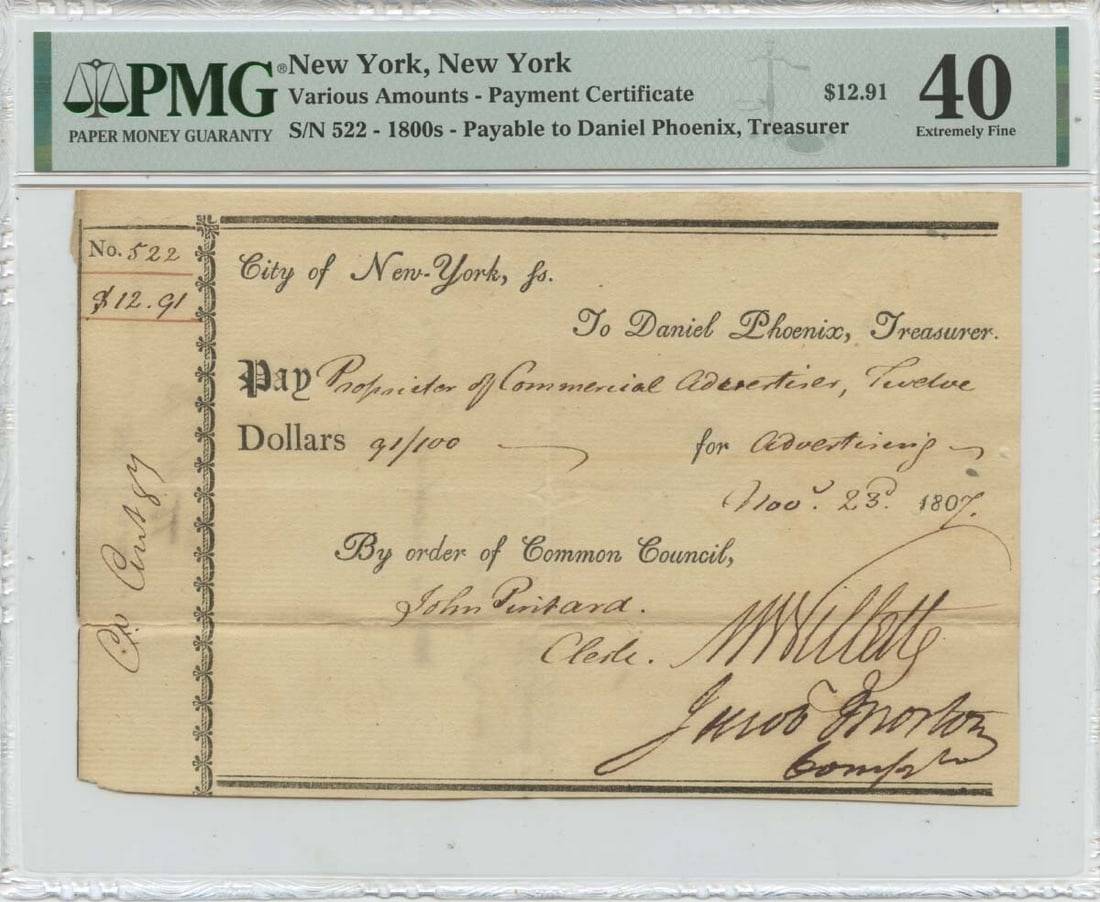 PMG®
PAPER MONEY GUARANTY
New York, New York
Various Amounts - Payment Certificate
S/N 522 - 1800s - Payable to Daniel Phoenix, Treasurer
$12.91
40
Extremely Fine
No. 522
$12.91
City of New-York, ſs.
To Daniel Phoenix, Treasurer.
Pay Proprietor of Commercial Advertiser, Twelve
Dollars 91/100 for Advertising
Nov.r 23d. 1807.
By order of Common Council,
John Pintard.
Clerk.
M Willett
Jacob Morton
Comptr